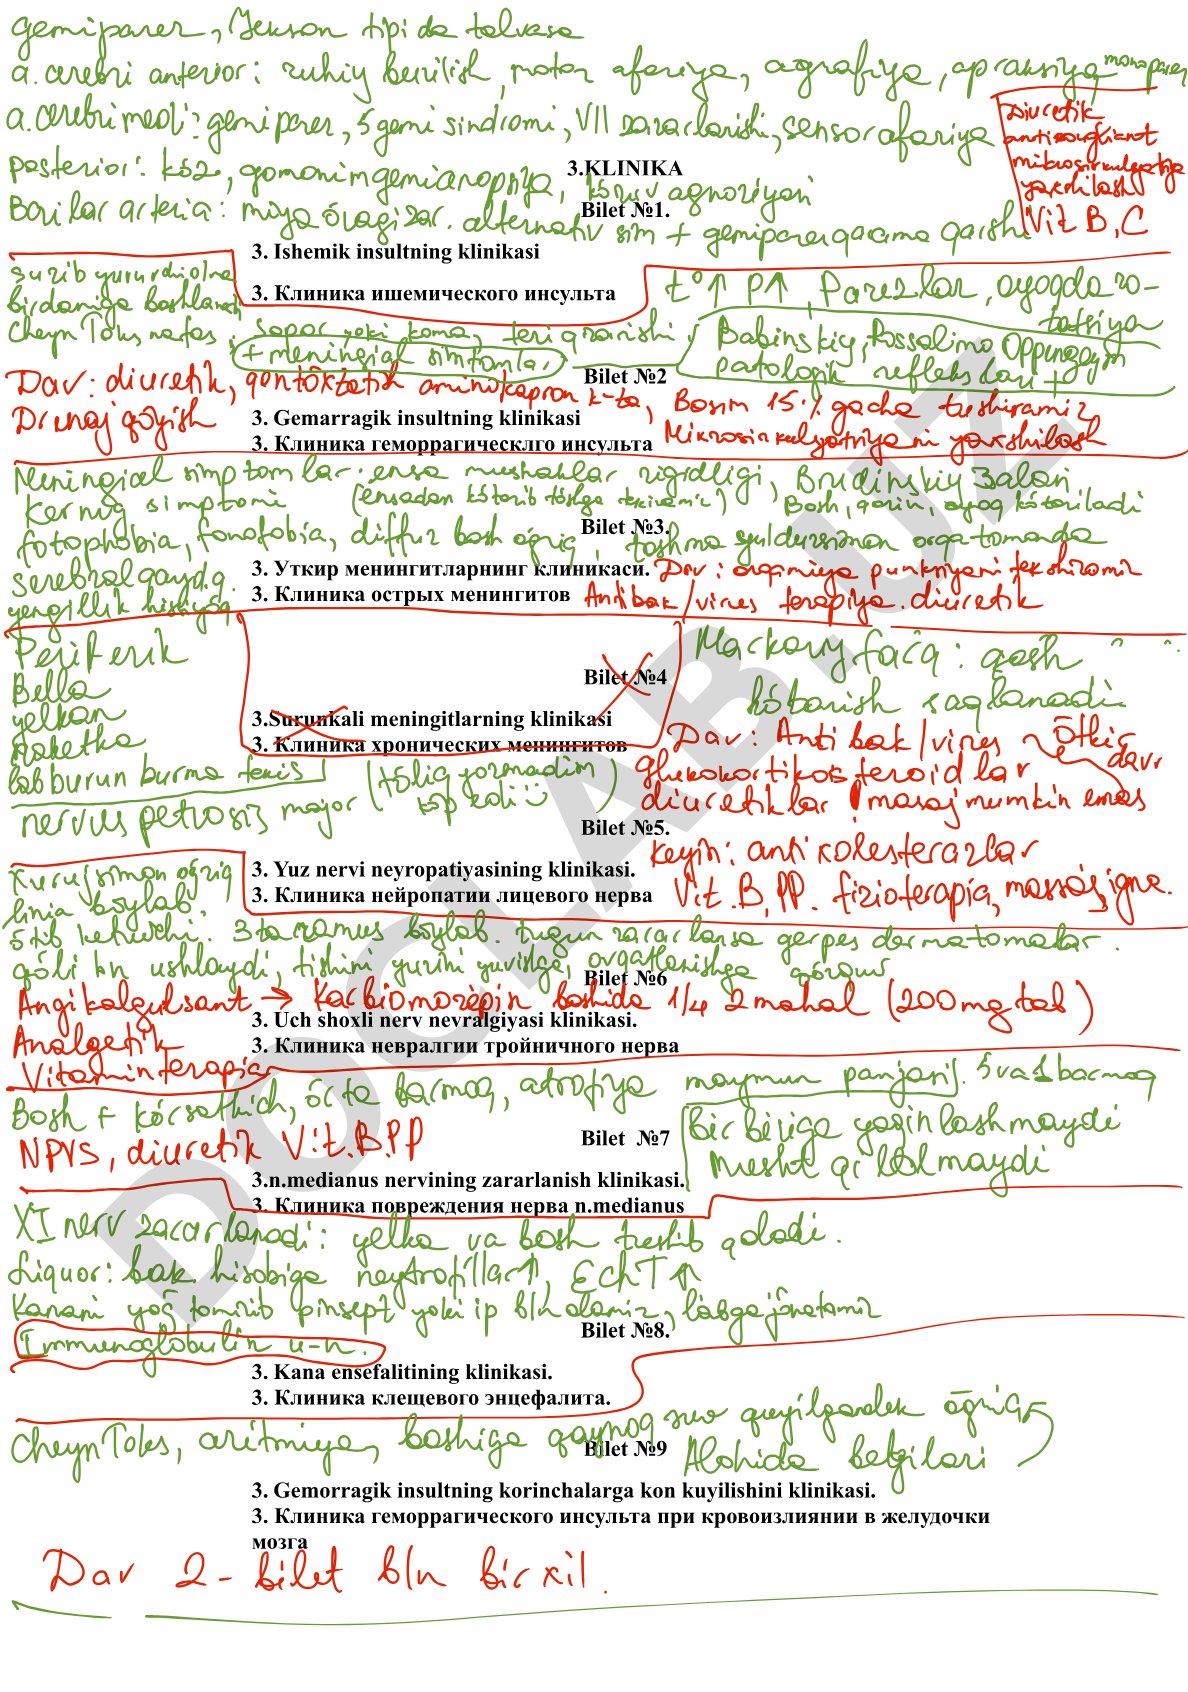 gemiparez, Jekson tipida talvasa
a. cerebri anterior: ruhiy buzilish, motor afaziya, agrafiya, apraksiya, monoparez
a. cerebri medi: gemiparez, 5 gemi sindromi, VII zararlanishi, sensor afaziya
Diuretik
antikoagliant
mikrosirkulyatsiya
yaxshilash
Vit B, C
Posterior: ko'z, gomonim gemianopsiya, ko'ruv agnoziyasi
3.KLINIKA
Bazilar arteria: miya o'zagi zar. alternativ sim + gemiparez qarama qarshi
Bilet №1.
3. Ishemik insultning klinikasi
3. Клиника ишемического инсульта
birdaniga boshlanadi
t° ↑ P↑ Parezlar, oyoqda ro-
tatsiya
Cheyn Toks nafas, sopor yoki koma, teri qizarishi
+ meningial simtomlar
Babinskiy, Rossalimo Oppengeym
patologik reflekslari +
Bilet №2
Dav: diuretik, qon to'xtatish aminokapron k-ta, Bosim 15% gacha tushiramiz
Drenaj qo'yish
Mikrosirkulyatsiyani yaxshilash
3. Gemarragik insultning klinikasi
3. Клиника геморрагическлго инсульта
Meningial simptomlar: ensa mushaklar rigidligi, Brudinskiy 3 alari
Kernig simptomi
Bosh, qorin, oyoq ko'tariladi
Bilet №3.
fotophobia, fonofobia, diffuz bosh og'riq, toshma yulduzsimon orqa tomonda
serebral qayd q.
yengillik his qiymaydi
3. Уткир менингитларнинг клиникаси.
3. Клиника острых менингитов
Dav: orqa miya punksiyani tekshiramiz
Antibak/virus terapiya. diuretik
Periferik
Bella
yelkan
Raketka
lab burun burma tekis
Markaziy falaj: qosh
ko'tarish saqlanadi
Bilet №4
3.Surunkali meningitlarning klinikasi
3. Клиника хронических менингитов
Dav: Anti bak/virus
glukokortikosteroidlar
diuretiklar ! masaj mumkin emas
O'tkir davr
(to'liq yozmadim
ko'p edi)
nervus petrosis major
Bilet №5.
3. Yuz nervi neyropatiyasining klinikasi.
3. Клиника нейропатии лицевого нерва
Keyin: antixolesterazlar
Vit. B, PP. fizioterapia, massaj, igna.
Xurujsimon og'riq
linia bo'ylab,
o'tib ketuvchi. 3 ta ramus bo'ylab. tugun zararlansa gerpes dermatomalar.
qo'li bn ushlaydi, tishini yuzini yuvishga, ovqatlanishga qo'rquv
Bilet №6
Angikalgulsant → Karbiomozepin boshida 1/4 2 mahal (200 mg tab)
Analgetik
Vitaminterapia
3. Uch shoxli nerv nevralgiyasi klinikasi.
3. Клиника невралгии тройничного нерва
Bosh + ko'rsatkich, o'rta barmoq, atrofiya maymun panjasi. 5 va 1 barmoq
bir biriga yaqinlashmaydi
musht qi lolmaydi
NPVS, diuretik Vit. B. PP
Bilet №7
3.n.medianus nervining zararlanish klinikasi.
3. Клиника повреждения нерва n.medianus
XI nerv zararlanadi: yelka va bosh tushib qoladi.
Liquor: bak hisobiga neytrofillar↑, EChT↑
Kanani yog' tomizib pinset yoki ip bln olamiz, labga jo'natamiz
Bilet №8.
Immunoglobulin u-n.
3. Kana ensefalitining klinikasi.
3. Клиника клещевого энцефалита.
CheynToks, aritmiya, boshiga qaynoq suv quyilgandek og'riq
Alohida belgilari
Bilet №9
3. Gemorragik insultning korinchalarga kon kuyilishini klinikasi.
3. Клиника геморрагического инсульта при кровоизлиянии в желудочки
мозга
Dav 2-bilet bln bir xil.
DOCLAB.UZ